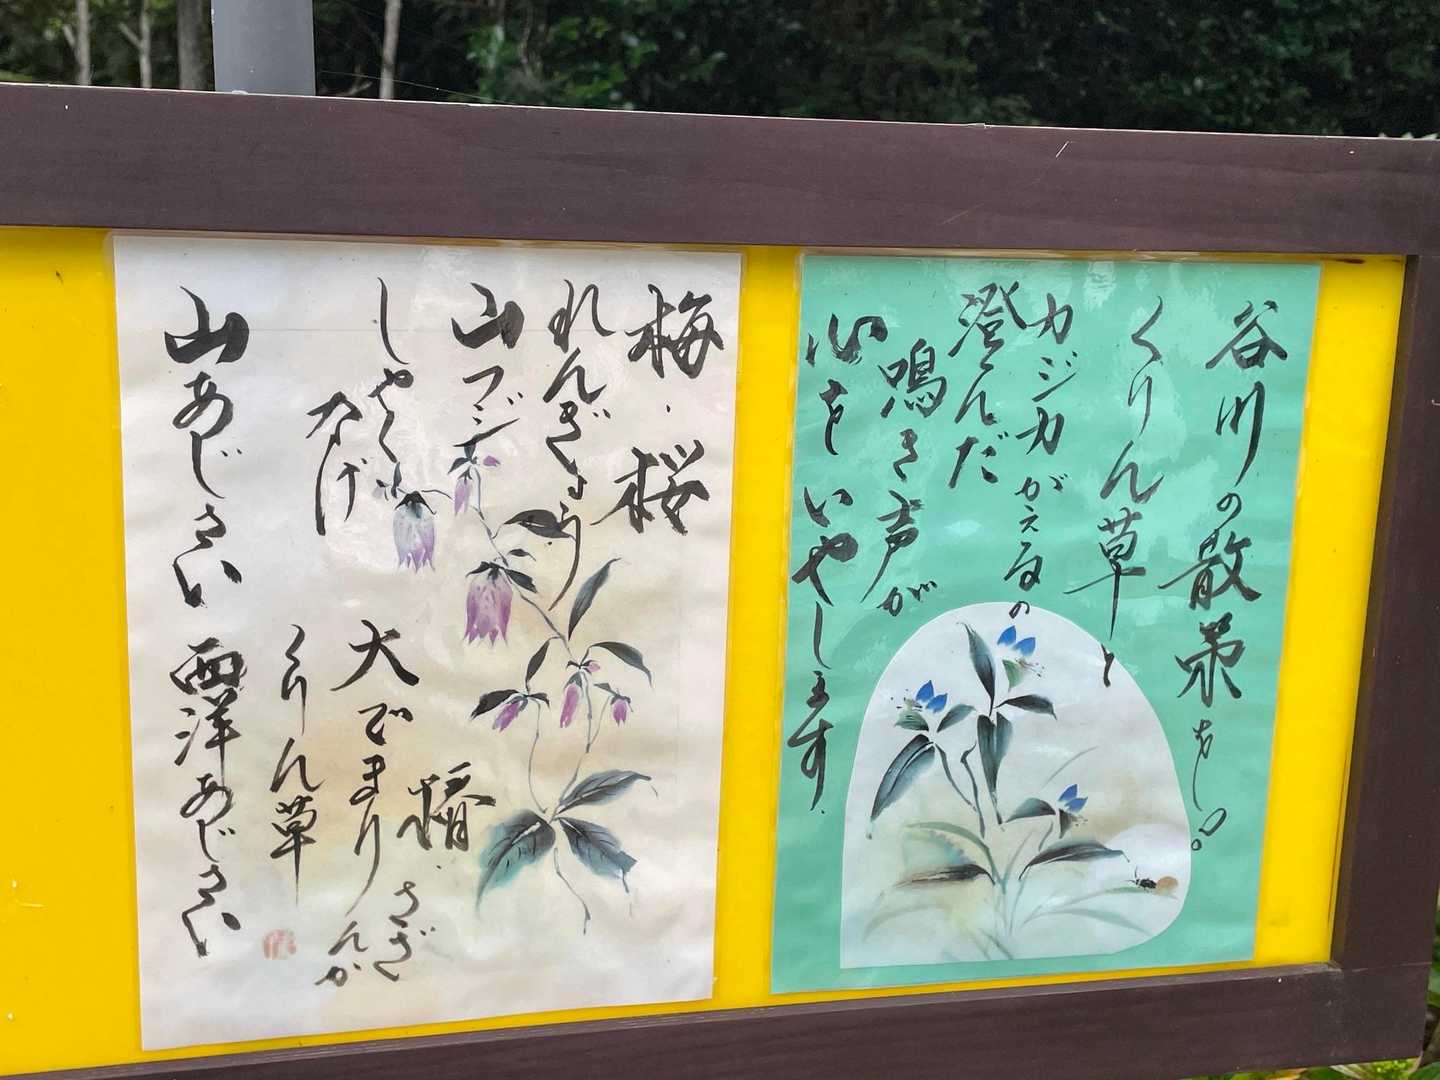 谷川の散策を
くりん草と
カジカがえるの
澄んだ
鳴き声が
心をいやします
梅・桜
れんぎょう
山フジ
しゃく
なげ
椿・さざ
んか
大でまり
くりん草
山あじさい 西洋あじさい